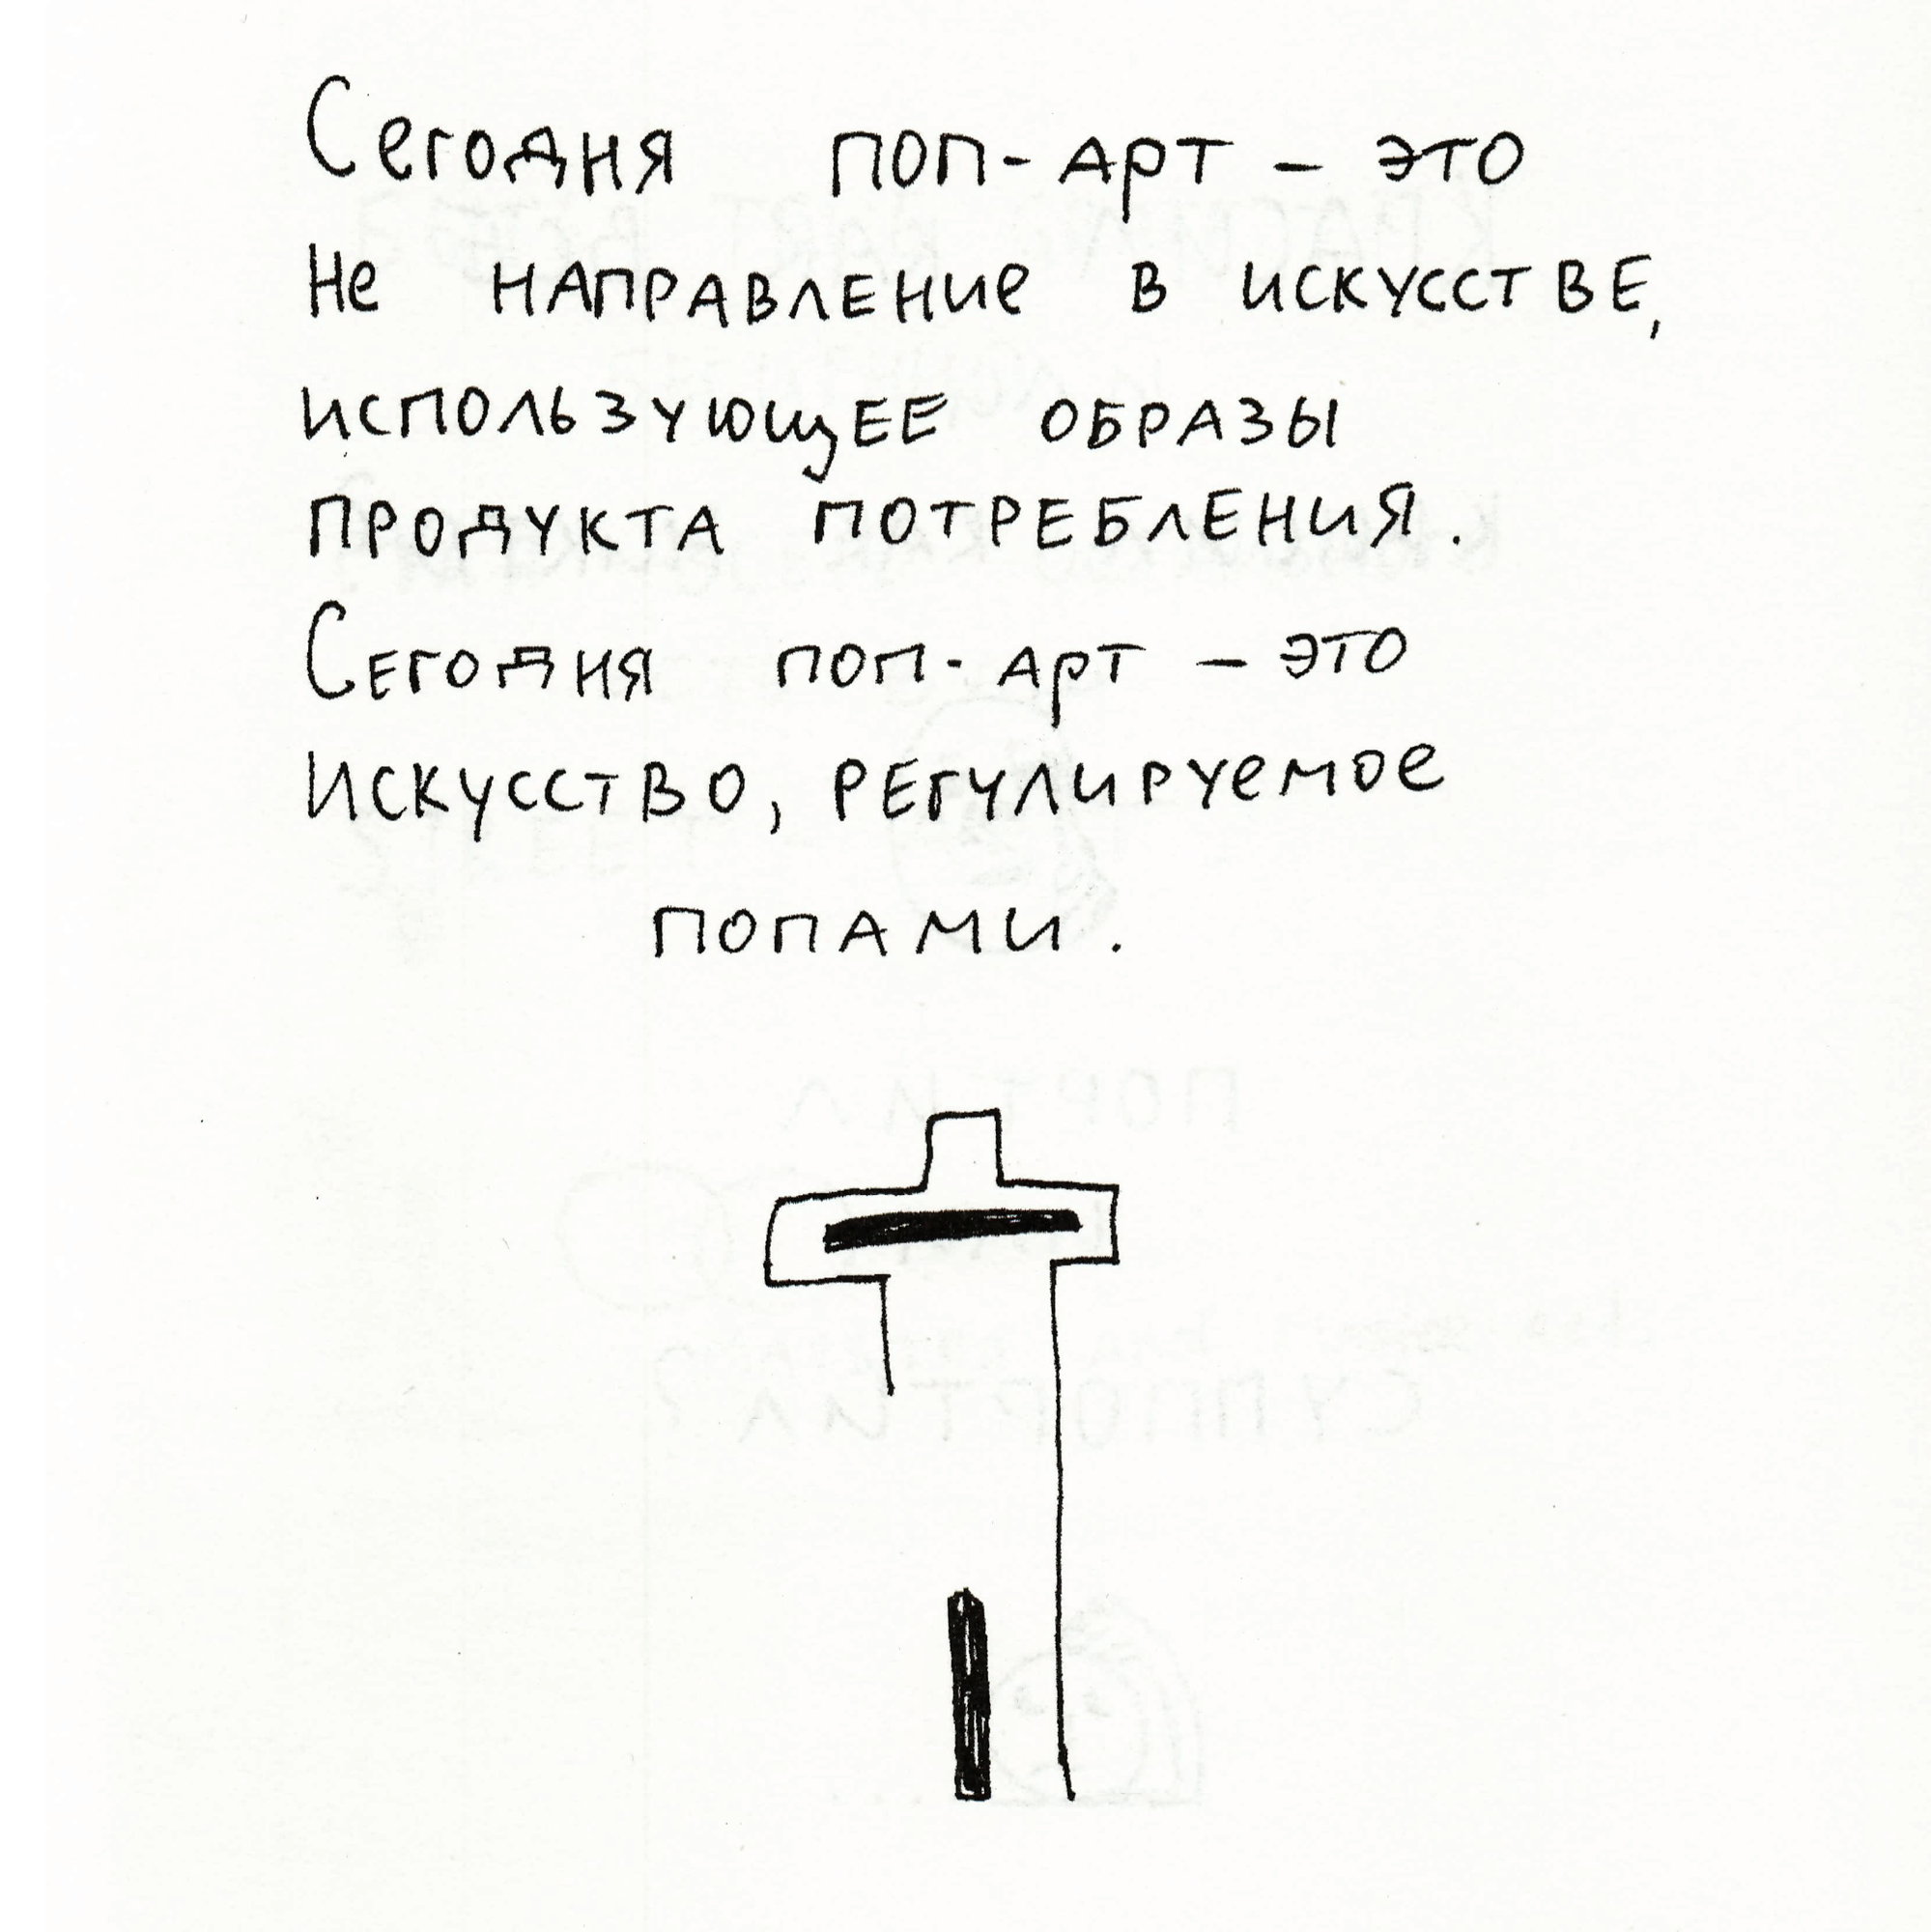 Сегодня поп-арт – это
не направление в искусстве,
использующее образы
продукта потребления.
Сегодня поп-арт – это
искусство, регулируемое
попами.